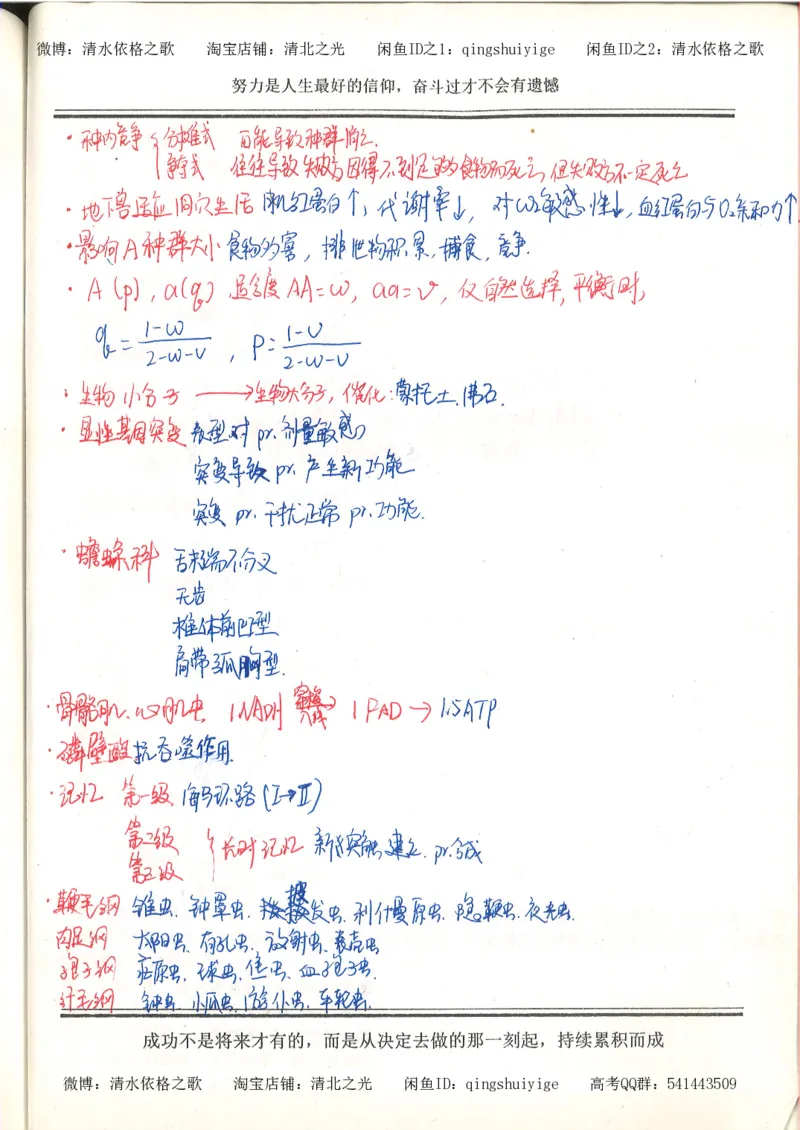 微博：清水依格之歌 淘宝店铺：清北之光 闲鱼ID之1：qingshuiyige 闲鱼ID之2：清水依格之歌
努力是人生最好的信仰，奋斗过才不会有遗憾
·种内竞争 { 分摊式 可能导致种群消亡.
争夺式 往往导致失败方因得不到足够的食物而死亡，但失败方不一定死亡
·地下兽适应洞穴生活 肌红蛋白↑，代谢率↓，对CO₂敏感性↓，血红蛋白与O₂亲和力↑
·影响A种群大小 食物多寡，排泄物积累，捕食，竞争.
·A(p)，a(q) 适合度 AA=ω，aa=v，仅自然选择，平衡时，
q=(1-ω)/(2-ω-v)，p=(1-v)/(2-ω-v)
·生物小分子 ⟶ 生物大分子，催化：蒙托土、沸石.
·显性基因突变 表型对pr.剂量敏感
突变导致pr.产生新功能
突变pr.干扰正常pr.功能.
·蟾蜍科 舌末端不分叉
无齿
椎体前凹型
肩带弧胸型.
·骨骼肌、 1NADH 穿梭 → 1FAD → 1.5ATP
·磷壁酸 抗吞噬作用.
·记忆 第一级 海马环路(I→II)
第二级
第三级 } 长时记忆 新突触建立、pr.合成
·鞭毛纲 锥虫、钟罩虫、披发虫、利什曼原虫、隐鞭虫、夜光虫.
肉足纲 太阳虫、有孔虫、放射虫、表壳虫
孢子纲 疟原虫、球虫、焦虫、血孢子虫.
纤毛纲 钟虫、小瓜虫、游仆虫、车轮虫.
成功不是将来才有的，而是从决定去做的那一刻起，持续累积而成
微博：清水依格之歌 淘宝店铺：清北之光 闲鱼ID：qingshuiyige 高考QQ群：541443509